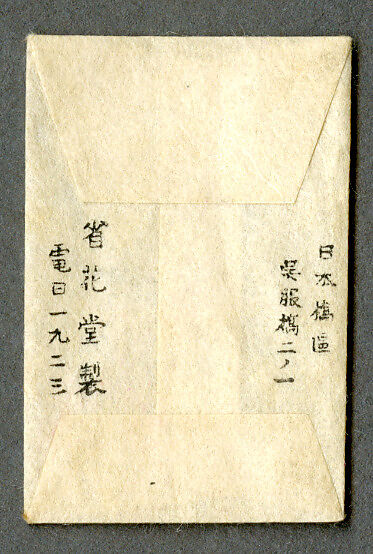 日本橋區
呉服橋二ノ一
省花堂製
電日一九二三